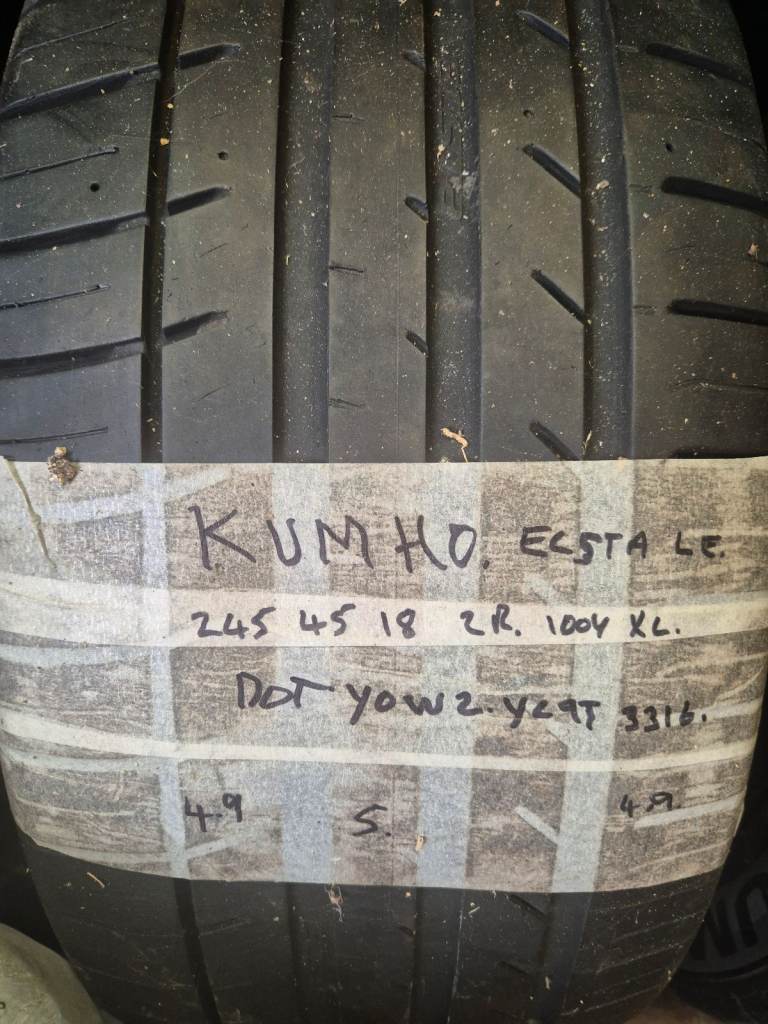 KUMHO. ECSTA LE.
245 45 18 ZR. 100Y XL.
DOT Y0W2.YL9T 3316.
4.9 5. 4.9.